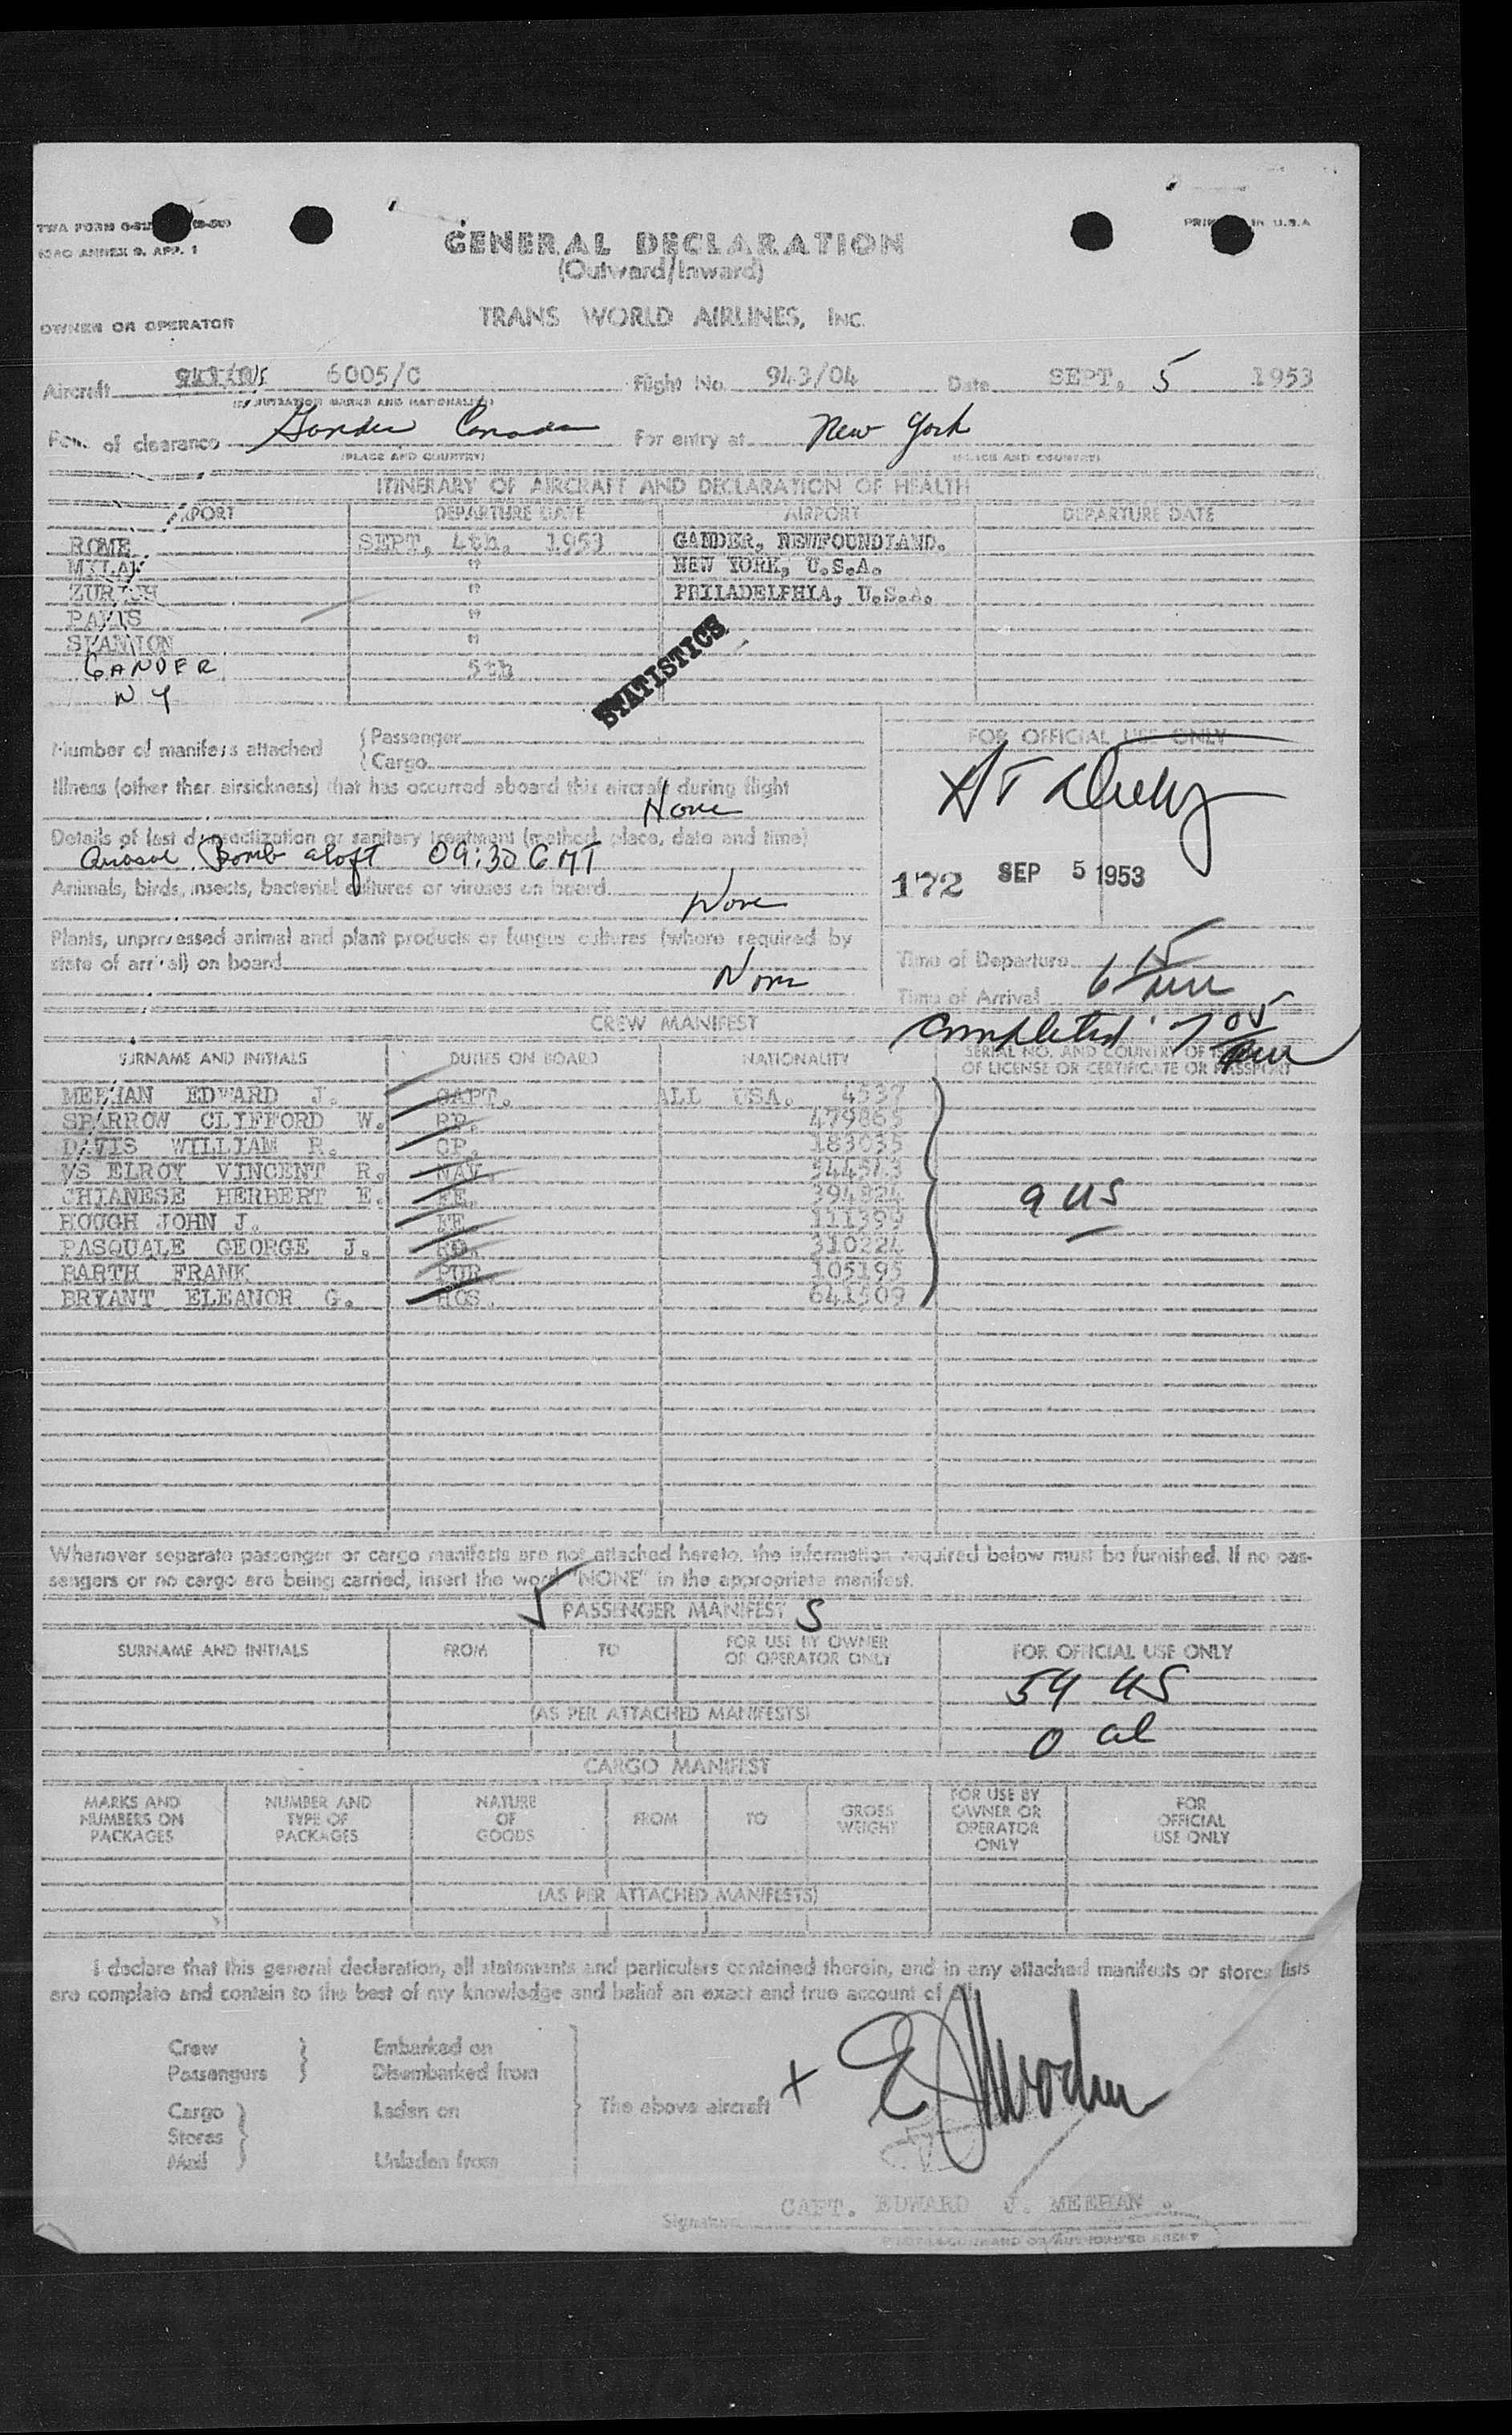 TWA FORM
ICAO ANNEX 9, APP. 1
PRINTED IN U.S.A
GENERAL DECLARATION
(Outward/Inward)
OWNER OR OPERATOR
TRANS WORLD AIRLINES, INC.
Aircraft 6005/C Flight No. 943/04 Date SEPT. 5 1953
(REGISTRATION MARKS AND NATIONALITY)
Port of clearance Gander Canada For entry at New York
(PLACE AND COUNTRY) (PLACE AND COUNTRY)
ITINERARY OF AIRCRAFT AND DECLARATION OF HEALTH
AIRPORT DEPARTURE DATE AIRPORT DEPARTURE DATE
ROME SEPT, 4th, 1953 GANDER, NEWFOUNDLAND.
MILAN " NEW YORK, U.S.A.
ZURICH " PHILADELPHIA, U.S.A.
PARIS "
SHANNON "
GANDER 5th
N Y
STATISTICS
Number of manifests attached { Passenger
{ Cargo
FOR OFFICIAL USE ONLY
Illness (other than airsickness) that has occurred aboard this aircraft during flight
None
Details of last disinsectization or sanitary treatment (method, place, date and time)
Bomb aloft 09:30 GMT
172 SEP 5 1953
Animals, birds, insects, bacterial cultures or viruses on board
None
Plants, unprocessed animal and plant products or fungus cultures (where required by
state of arrival) on board
None
Time of Departure
Time of Arrival 6 15
completed 7 05
CREW MANIFEST
SURNAME AND INITIALS DUTIES ON BOARD NATIONALITY SERIAL NO. AND COUNTRY OF ISSUE
OF LICENSE OR CERTIFICATE OR PASSPORT
MEEHAN EDWARD J. CAPT. ALL USA. 4537
SPARROW CLIFFORD W. PP. 479865
DAVIS WILLIAM R. CP. 183035
VS ELROY VINCENT R. NAV. 544543
CHIANESE HERBERT E. FE. 394824
HOUGH JOHN J. FE. 111399
PASQUALE GEORGE J. RO. 310224
BARTH FRANK PUR 105195
BRYANT ELEANOR G. HOS. 641509
9 US
Whenever separate passenger or cargo manifests are not attached hereto, the information required below must be furnished. If no pas-
sengers or no cargo are being carried, insert the word "NONE" in the appropriate manifest.
PASSENGER MANIFEST S
SURNAME AND INITIALS FROM TO FOR USE BY OWNER
OR OPERATOR ONLY FOR OFFICIAL USE ONLY
54 US
(AS PER ATTACHED MANIFESTS)
0 al
CARGO MANIFEST
MARKS AND
NUMBERS ON
PACKAGES NUMBER AND
TYPE OF
PACKAGES NATURE
OF
GOODS FROM TO GROSS
WEIGHT FOR USE BY
OWNER OR
OPERATOR
ONLY FOR
OFFICIAL
USE ONLY
(AS PER ATTACHED MANIFESTS)
I declare that this general declaration, all statements and particulars contained therein, and in any attached manifests or stores lists
are complete and contain to the best of my knowledge and belief an exact and true account of all
Crew } Embarked on
Passengers } Disembarked from
The above aircraft
Cargo } Laden on
Stores
Mail } Unladen from
CAPT. EDWARD J. MEEHAN.
Signature
PILOT IN COMMAND OR AUTHORIZED AGENT